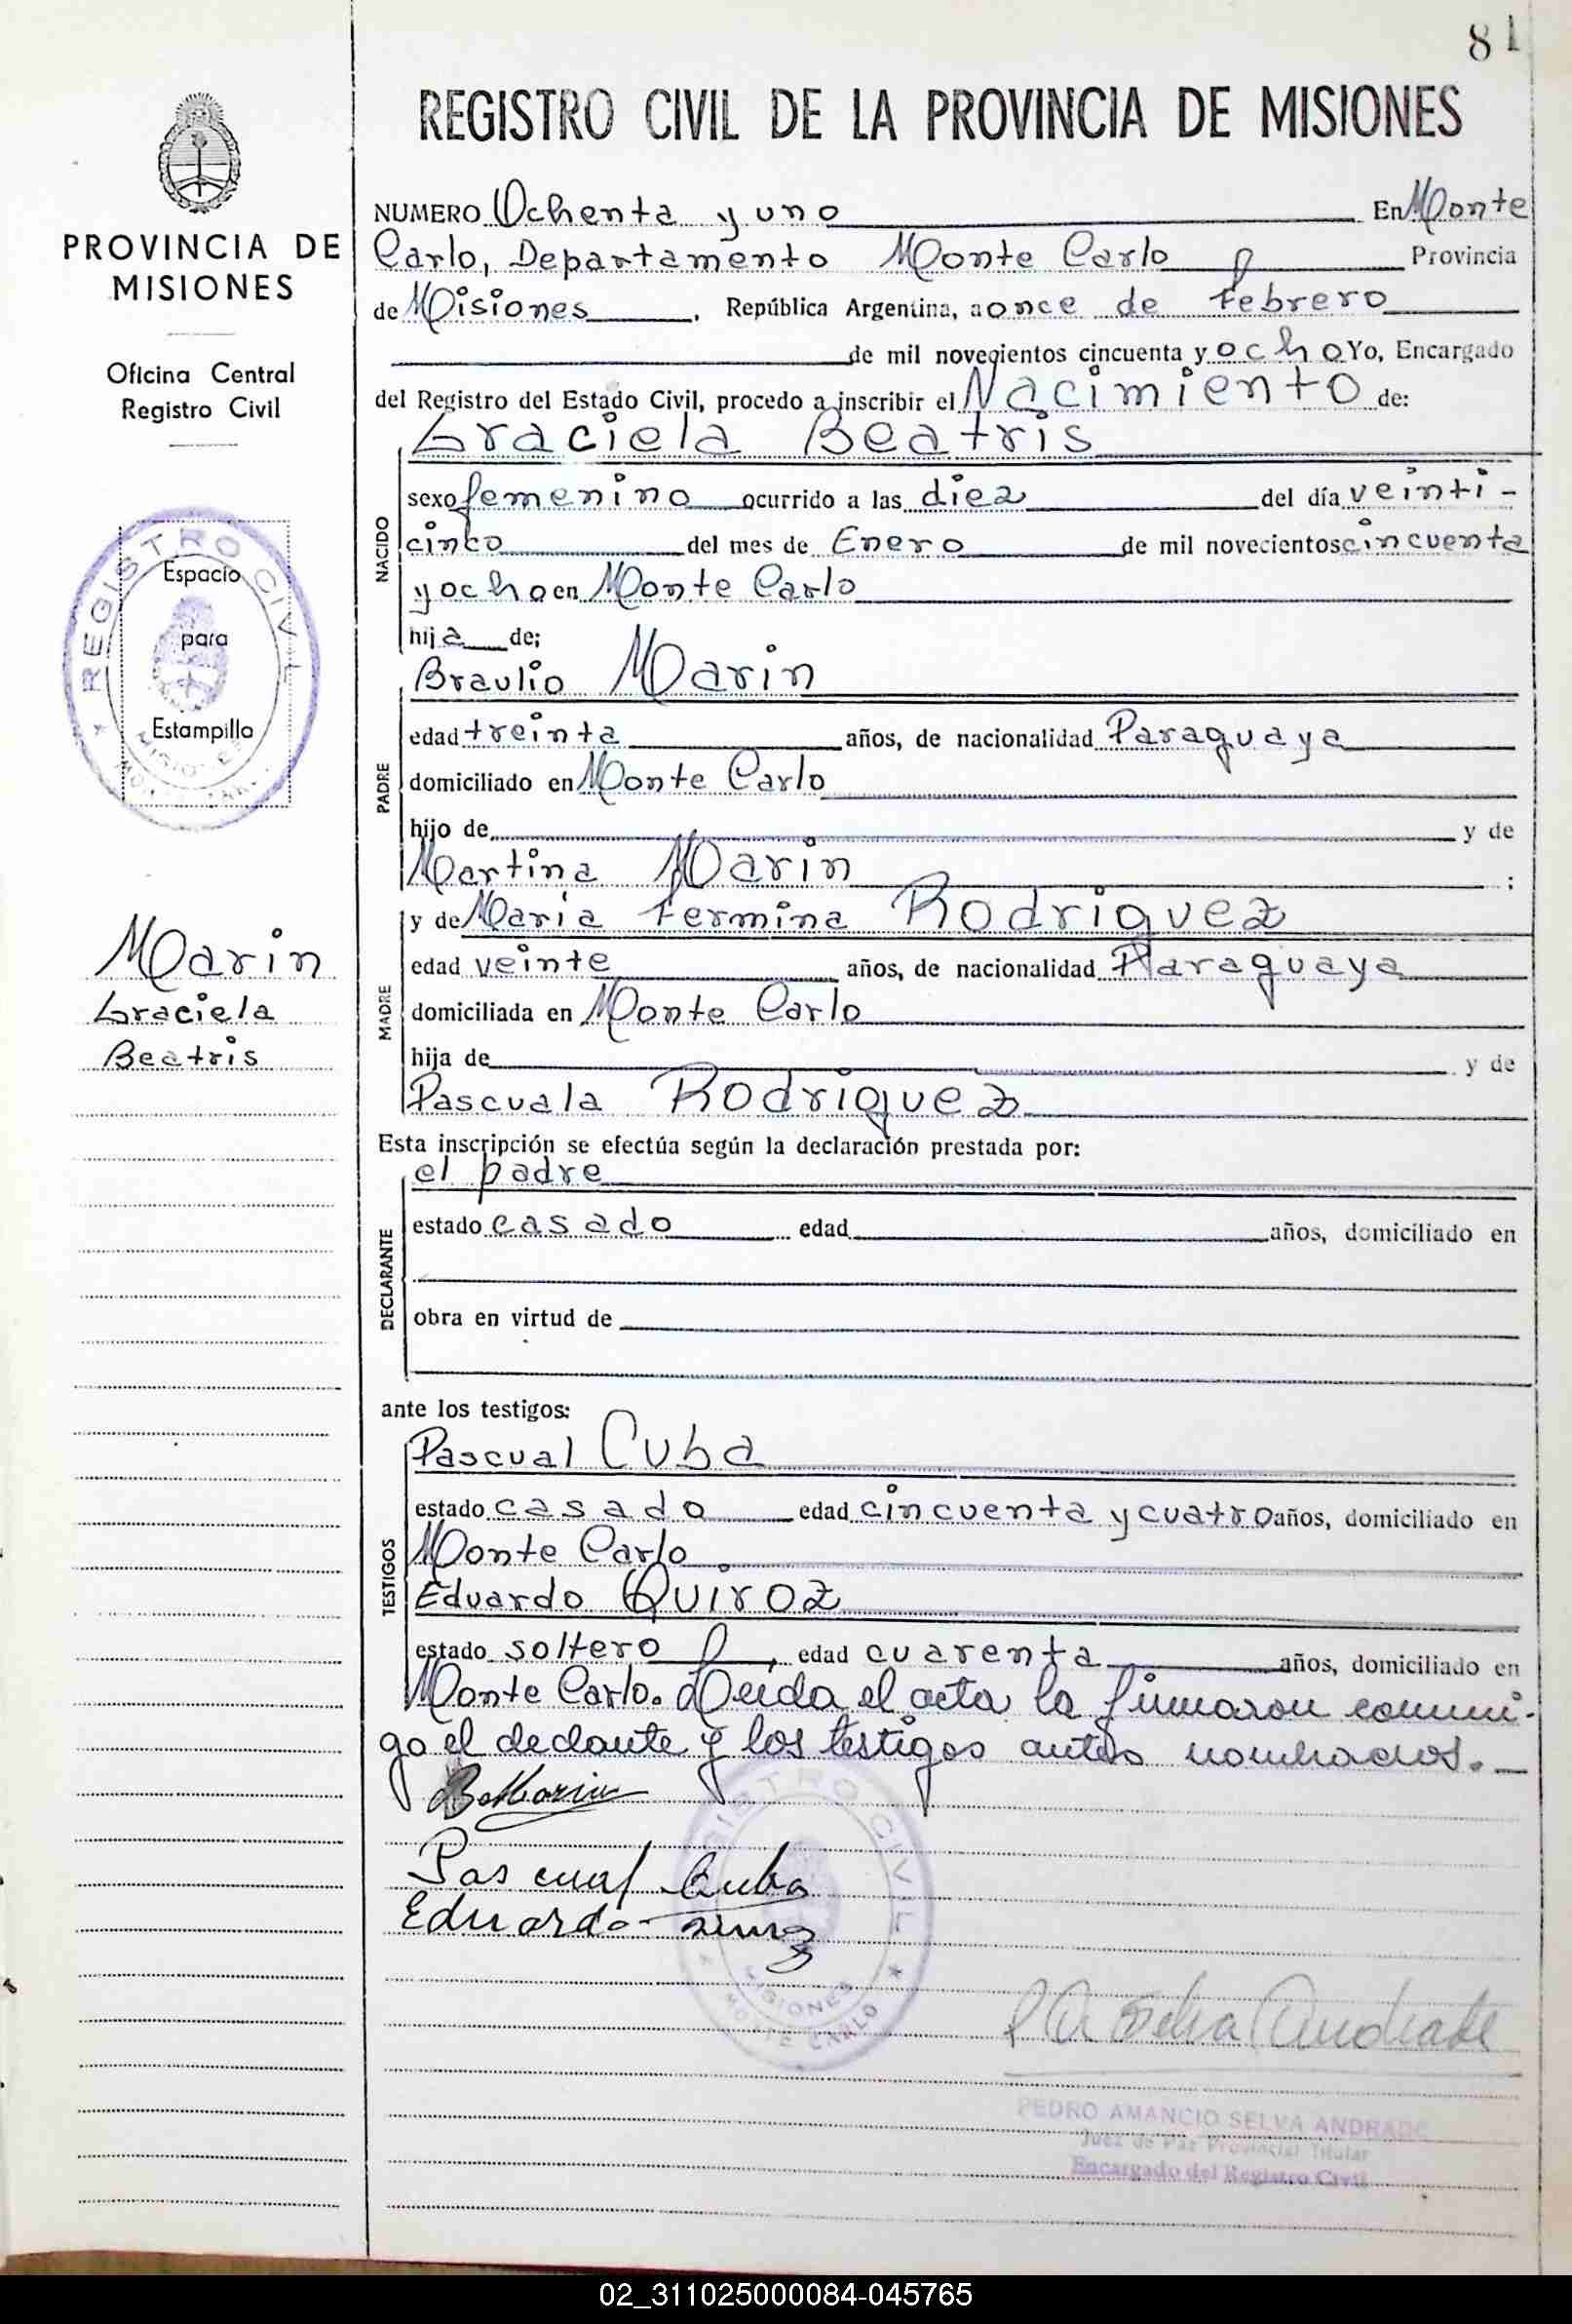 81
REGISTRO CIVIL DE LA PROVINCIA DE MISIONES
PROVINCIA DE
MISIONES
Oficina Central
Registro Civil
REGISTRO CIVIL
Espacio
para
Estampilla
MISIONES
MONTE CARLO
Marin
Graciela
Beatris
NUMERO Ochenta y uno En Monte
Carlo, Departamento Monte Carlo Provincia
de Misiones, República Argentina, a once de Febrero
de mil novecientos cincuenta y ocho Yo, Encargado
del Registro del Estado Civil, procedo a inscribir el Nacimiento de:
Graciela Beatris
NACIDO
sexo femenino ocurrido a las diez del día veinti-
cinco del mes de Enero de mil novecientos cincuenta
y ocho en Monte Carlo
hija de;
Braulio Marin
PADRE
edad treinta años, de nacionalidad Paraguaya
domiciliado en Monte Carlo
hijo de y de
Martina Marin ;
y de Maria Fermina Rodriguez
MADRE
edad veinte años, de nacionalidad Paraguaya
domiciliada en Monte Carlo
hija de y de
Pascuala Rodriguez
Esta inscripción se efectúa según la declaración prestada por:
el padre
DECLARANTE
estado casado edad años, domiciliado en
obra en virtud de
ante los testigos:
Pascual Cuba
TESTIGOS
estado casado edad cincuenta y cuatro años, domiciliado en
Monte Carlo
Eduardo Quiroz
estado soltero, edad cuarenta años, domiciliado en
Monte Carlo. Leida el acta la firmaron conmi-
go el declante y los testigos antes nombrados.
B Marin
Pascual Cuba
Eduardo
REGISTRO CIVIL
MISIONES
MONTE CARLO
P A Selva Andrade
PEDRO AMANCIO SELVA ANDRADE
Juez de Paz Provincial Titular
Encargado del Registro Civil
02_311025000084-045765